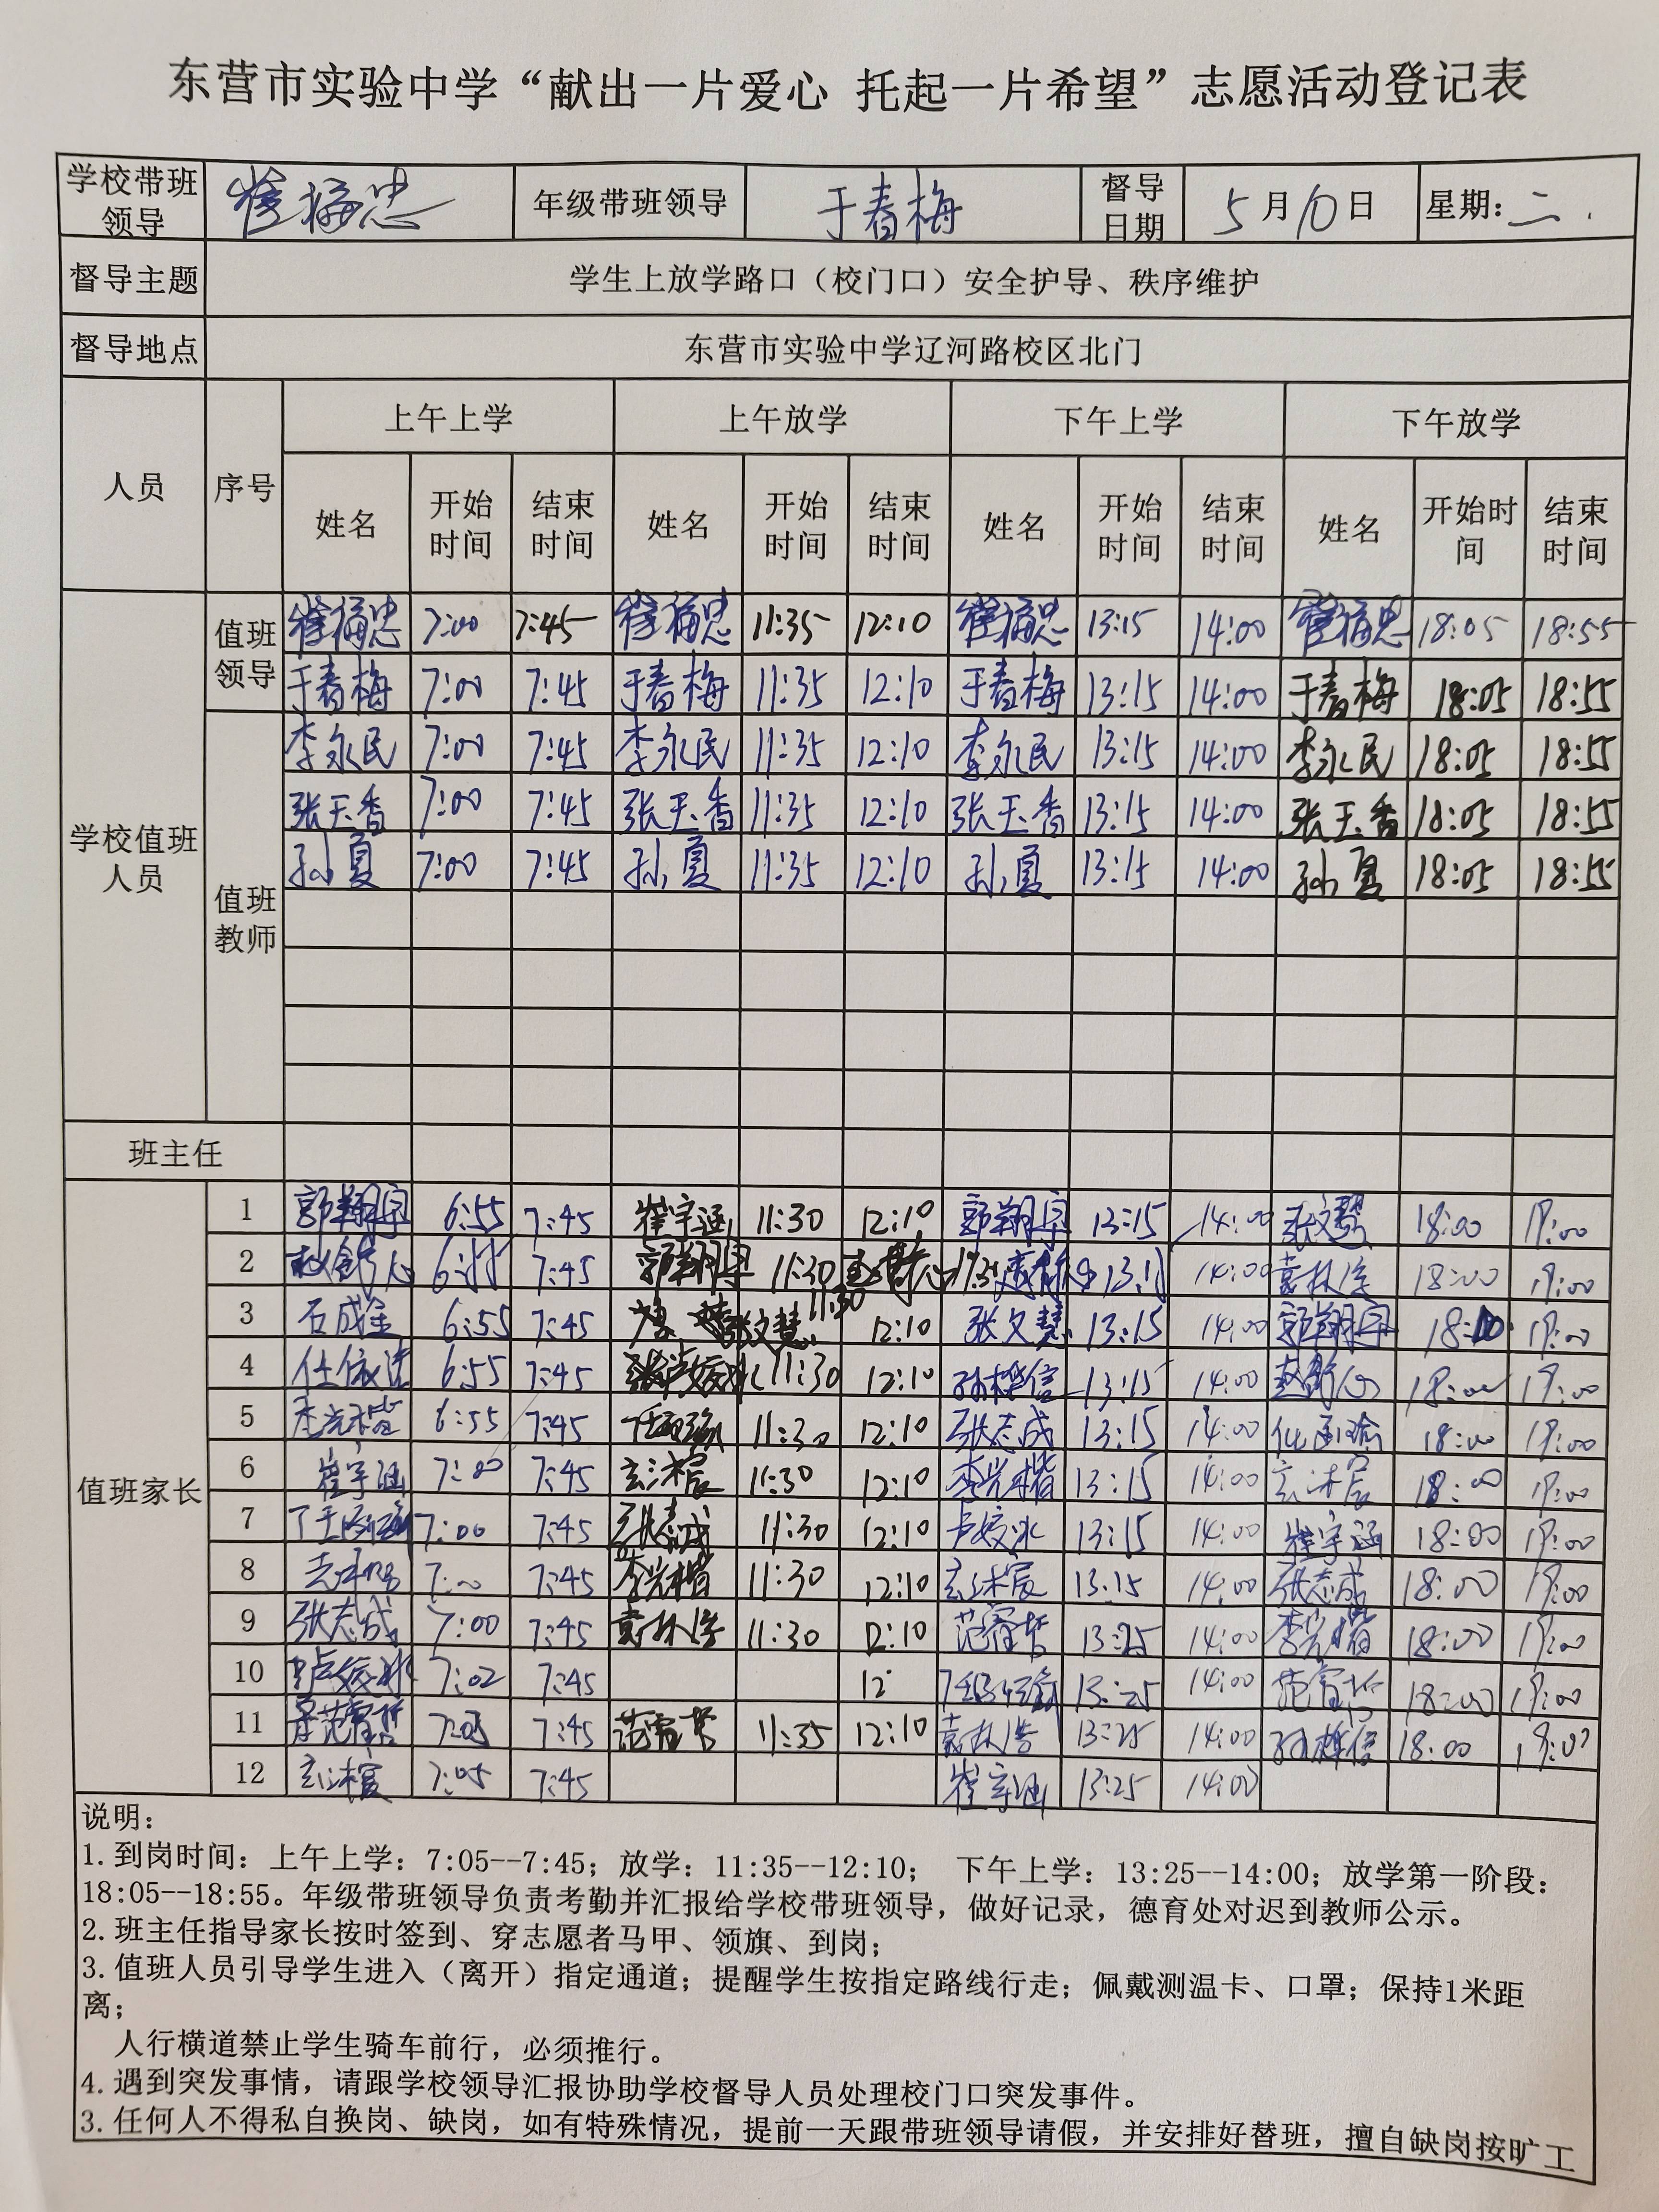 东营市实验中学“献出一片爱心 托起一片希望”志愿活动登记表
学校带班领导 崔福忠 年级带班领导 于春梅 督导日期 5月10日 星期：二.
督导主题 学生上放学路口（校门口）安全护导、秩序维护
督导地点 东营市实验中学辽河路校区北门
人员 序号 上午上学 上午放学 下午上学 下午放学
姓名 开始时间 结束时间 姓名 开始时间 结束时间 姓名 开始时间 结束时间 姓名 开始时间 结束时间
学校值班人员
值班领导
崔福忠 7:00 7:45 崔福忠 11:35 12:10 崔福忠 13:15 14:00 崔福忠 18:05 18:55
于春梅 7:00 7:45 于春梅 11:35 12:10 于春梅 13:15 14:00 于春梅 18:05 18:55
值班教师
李永民 7:00 7:45 李永民 11:35 12:10 李永民 13:15 14:00 李永民 18:05 18:55
张玉香 7:00 7:45 张玉香 11:35 12:10 张玉香 13:15 14:00 张玉香 18:05 18:55
孙夏 7:00 7:45 孙夏 11:35 12:10 孙夏 13:15 14:00 孙夏 18:05 18:55
班主任
值班家长
1 郭翔宇 6:55 7:45 崔宇涵 11:30 12:10 郭翔宇 13:15 14:00 18:00 19:00
2 7:45 郭翔宇 11:30 14:00 18:00 19:00
3 石成金 6:55 7:45 张文慧 11:30 12:10 张文慧 13:15 14:00 郭翔宇 19:00
4 6:55 7:45 11:30 12:10 13:15 14:00 18:00 19:00
5 6:55 7:45 11:30 12:10 张志成 13:15 14:00 18:00 19:00
6 崔宇涵 7:00 7:45 11:30 12:10 13:15 14:00 18:00 19:00
7 7:00 7:45 张志成 11:30 12:10 卢姣冰 13:15 14:00 崔宇涵 18:00 19:00
8 7:45 11:30 12:10 13:15 14:00 张志成 18:00 19:00
9 张志成 7:00 7:45 11:30 12:10 13:25 14:00 18:00 19:00
10 7:02 7:45 12 13:25 14:00 18:00 19:00
11 7:45 11:35 12:10 13:25 14:00 18:00
12 7:05 7:45 崔宇涵 13:25 14:00
说明：
1.到岗时间：上午上学：7:05--7:45；放学：11:35--12:10； 下午上学：13:25--14:00；放学第一阶段：
18:05--18:55。年级带班领导负责考勤并汇报给学校带班领导，做好记录，德育处对迟到教师公示。
2.班主任指导家长按时签到、穿志愿者马甲、领旗、到岗；
3.值班人员引导学生进入（离开）指定通道；提醒学生按指定路线行走；佩戴测温卡、口罩；保持1米距
离；
人行横道禁止学生骑车前行，必须推行。
4.遇到突发事情，请跟学校领导汇报协助学校督导人员处理校门口突发事件。
3.任何人不得私自换岗、缺岗，如有特殊情况，提前一天跟带班领导请假，并安排好替班，擅自缺岗按旷工